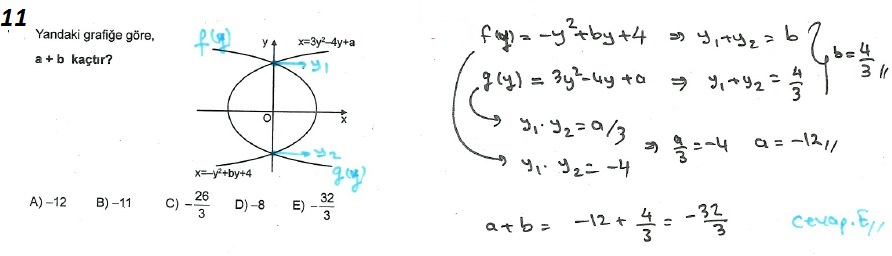 11
Yandaki grafiğe göre,
a + b kaçtır?
f(y)
y
x=3y²–4y+a
y₁
O
x
y₂
x=–y²+by+4
g(y)
A) –12 B) –11 C) –26/3 D) –8 E) –32/3
f(y) = -y²+by+4 ⇒ y₁+y₂ = b
b = 4/3 //
g(y) = 3y²-4y+a ⇒ y₁+y₂ = 4/3
y₁. y₂ = a/3
⇒ a/3 = -4 a = -12 //
y₁. y₂ = -4
a+b = -12 + 4/3 = -32/3
Cevap.E //